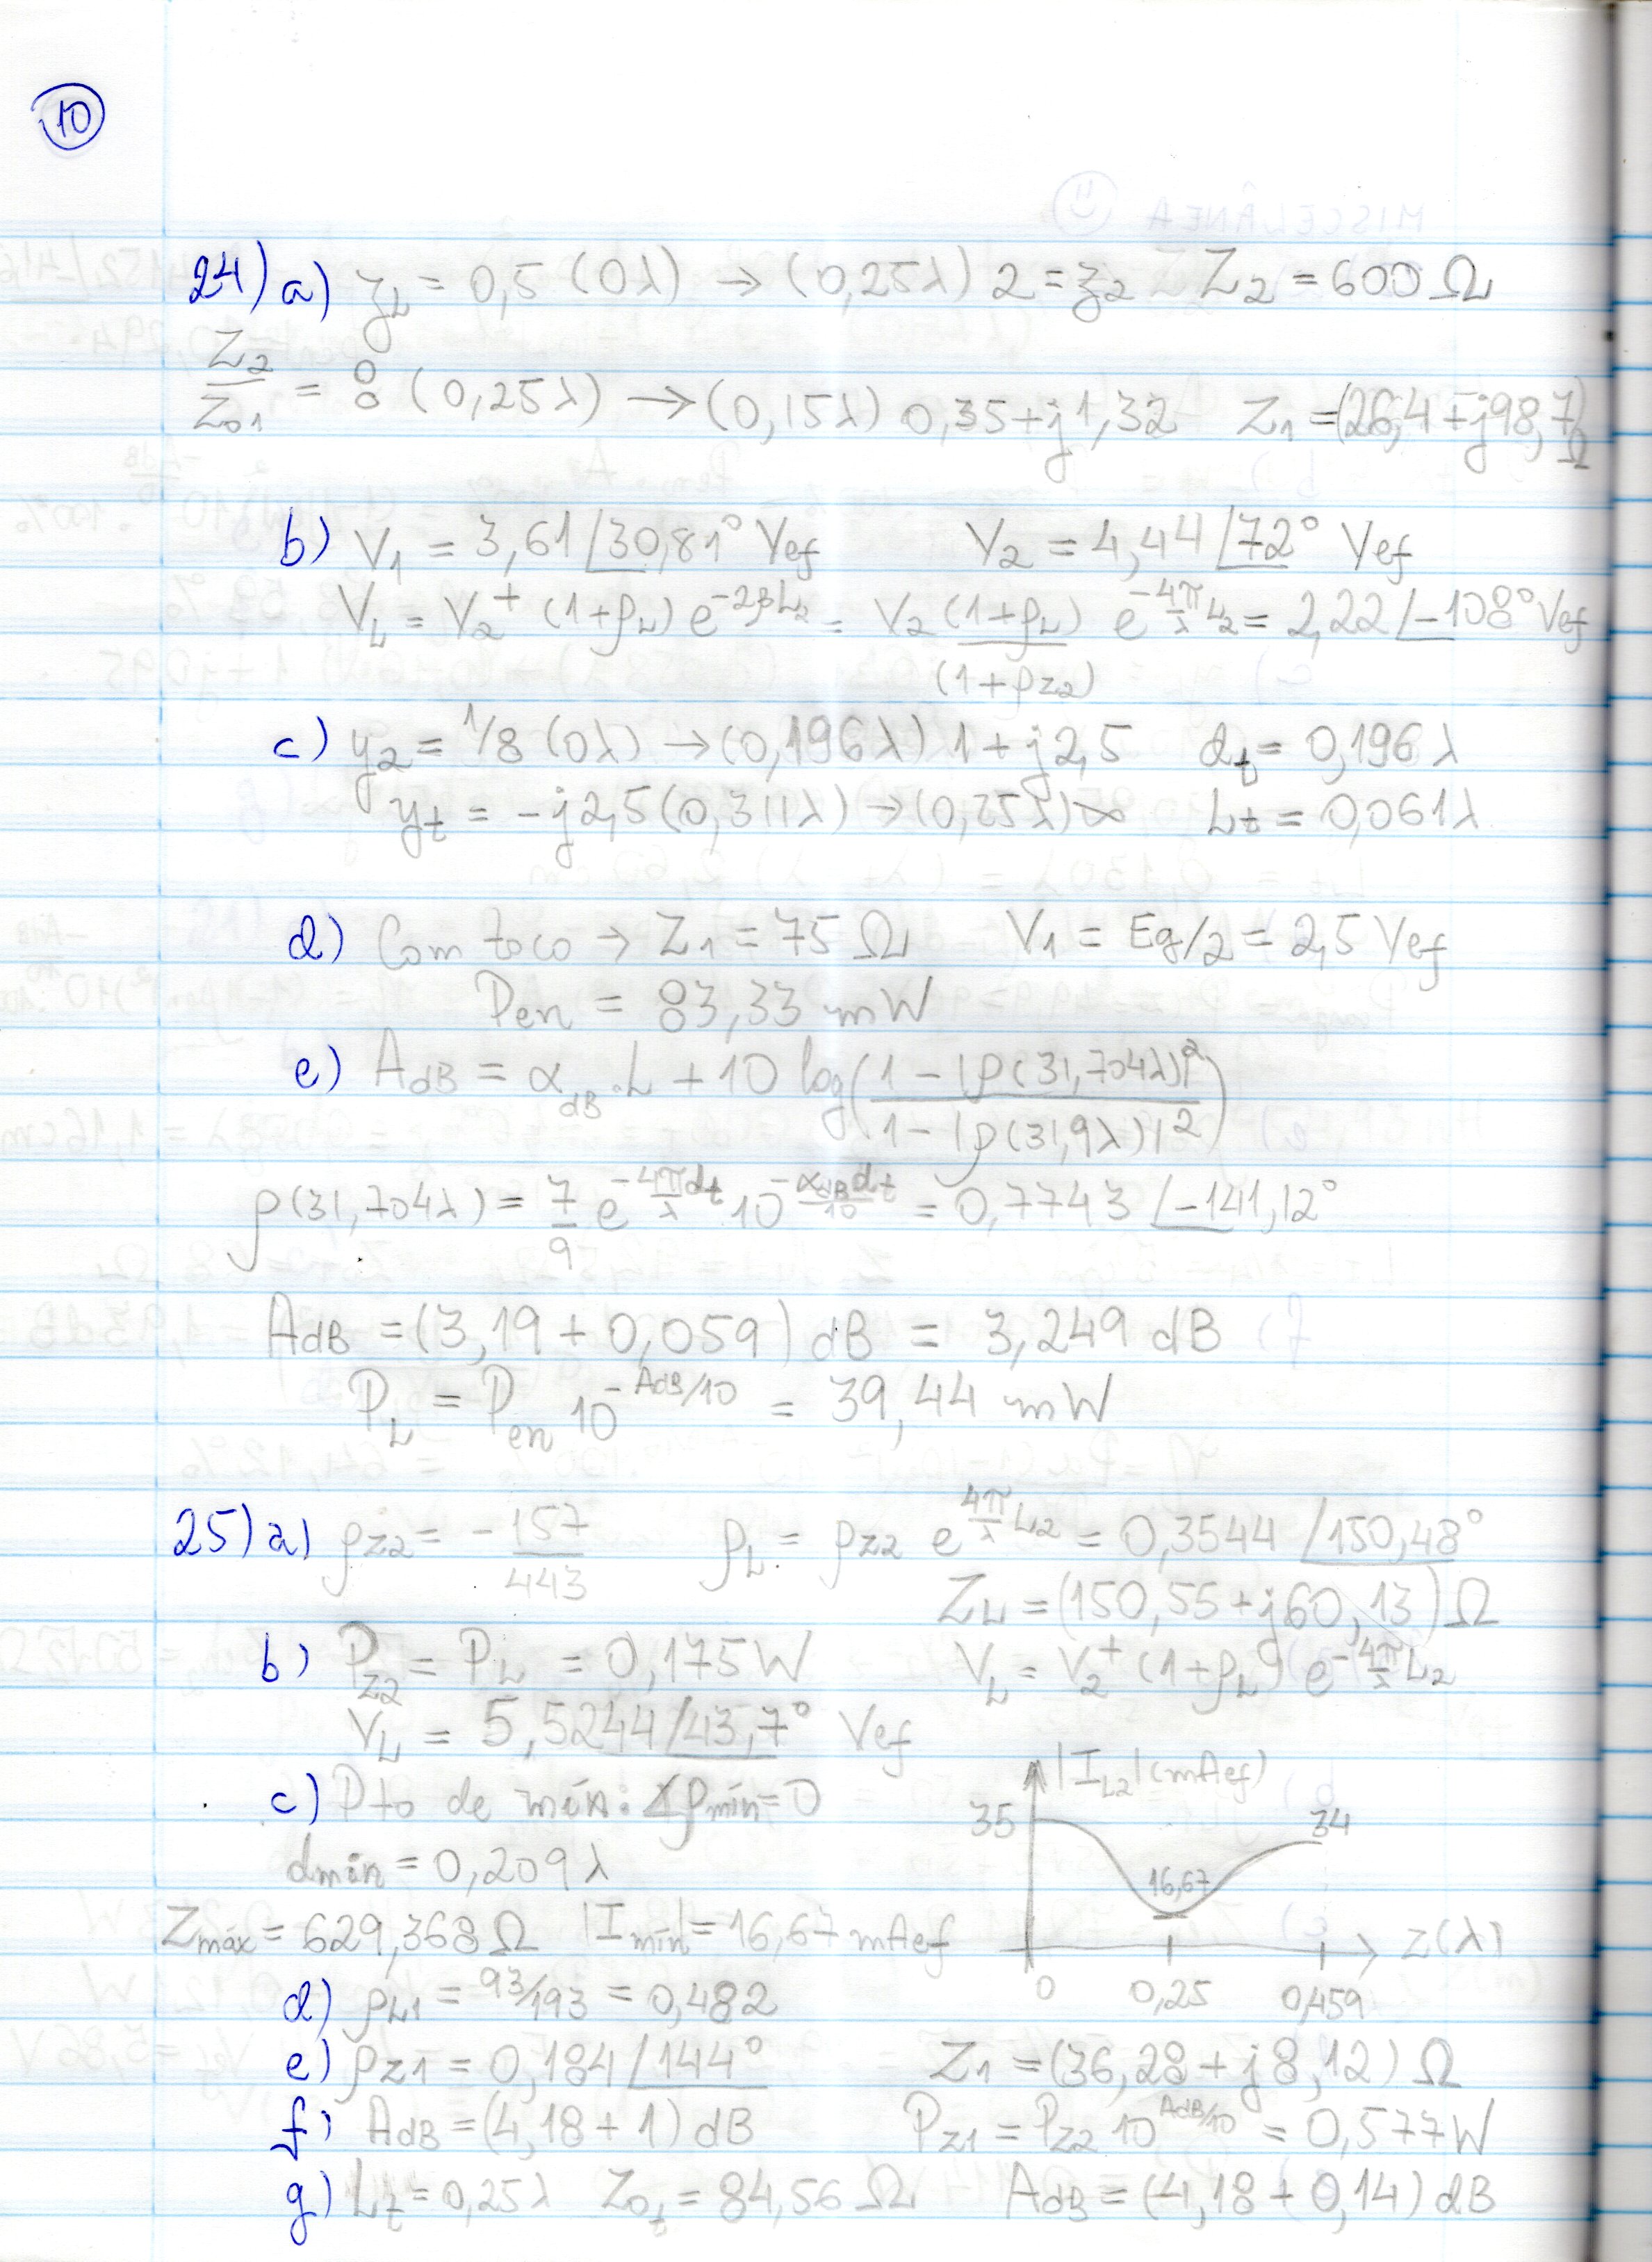 10
24) a) zL = 0,5 (0λ) → (0,25λ) 2 = z2 Z2 = 600 Ω
Z2/Z01 = 8 (0,25λ) → (0,15λ) 0,35+j1,32 Z1 = (26,4+j98,7)Ω
b) V1 = 3,61 /30,81° Vef V2 = 4,44 /72° Vef
VL = V2+ (1+ρL) e^-2βL2 = V2 (1+ρL)/(1+ρZ2) e^-4π/λ L2 = 2,22 /-108° Vef
c) y2 = 1/8 (0λ) → (0,196λ) 1 + j2,5 dt = 0,196λ
yt = -j2,5 (0,311λ) → (0,25λ) ∞ Lt = 0,061λ
d) Com toco → Z1 = 75 Ω V1 = Eg/2 = 2,5 Vef
Pen = 83,33 mW
e) AdB = αdB.L + 10 log(1 - |ρ(31,704λ)|²/1 - |ρ(31,9λ)|²)
ρ(31,704λ) = 7/9 e^-4π/λ dt 10^-αdB dt/10 = 0,7743 /-141,12°
AdB = (3,19 + 0,059) dB = 3,249 dB
PL = Pen 10^-AdB/10 = 39,44 mW
25) a) ρZ2 = -157/443 ρL = ρZ2 e^4π/λ L2 = 0,3544 /150,48°
ZL = (150,55+j60,13) Ω
b) PZ2 = PL = 0,175W VL = V2+ (1+ρL) e^-4π/λ L2
VL = 5,5244 /43,7° Vef
c) Pto de mín: ∠ρmín=0
dmín = 0,209λ
Zmáx = 629,368Ω |Imín| = 16,67 mAef
|IL2| (mAef)
35
34
16,67
z(λ)
0 0,25 0,459
d) ρL1 = 93/193 = 0,482
e) ρZ1 = 0,184 /144° Z1 = (36,28 + j8,12) Ω
f) AdB = (4,18 + 1) dB PZ1 = PZ2 10^AdB/10 = 0,577W
g) Lt = 0,25λ Z0t = 84,56 Ω AdB = (4,18 + 0,14) dB